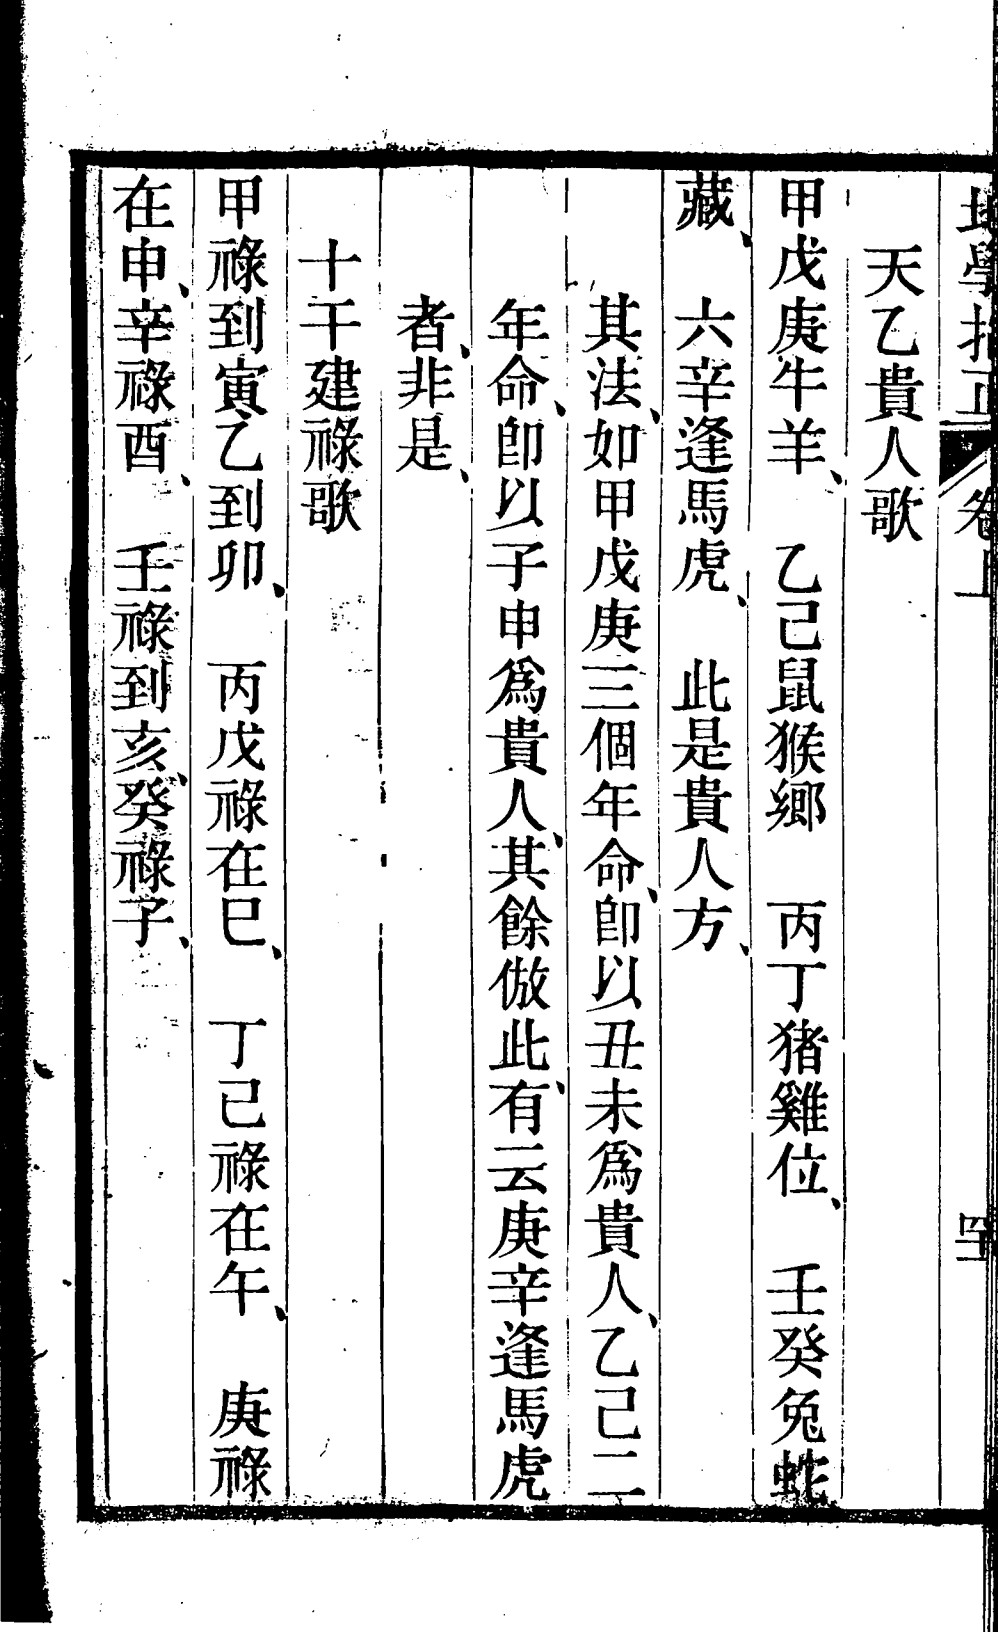 地學指正 卷上 罕
天乙貴人歌
甲戊庚牛羊、 乙己鼠猴鄉 丙丁猪雞位、 壬癸兔蛇
藏、 六辛逢馬虎、 此是貴人方、
其法、如甲戊庚三個年命、卽以丑未爲貴人、乙己二
年命、卽以子申爲貴人、其餘倣此、有云庚辛逢馬虎
者、非是、
十干建祿歌
甲祿到寅乙到卯、 丙戊祿在巳、 丁己祿在午、 庚祿
在申、辛祿酉、 壬祿到亥、癸祿子、